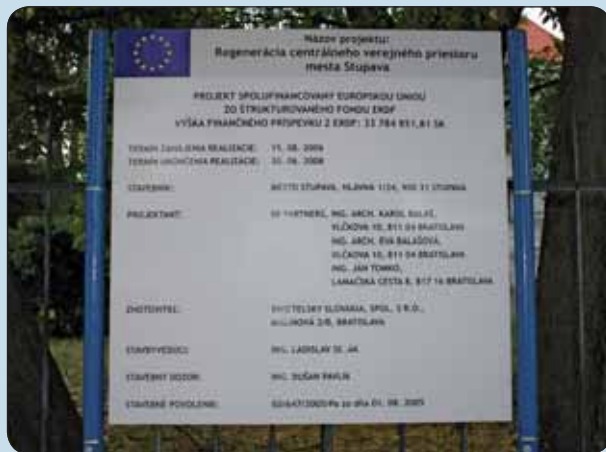 Názov projektu:
Regenerácia centrálneho verejného priestoru
mesta Stupava
PROJEKT SPOLUFINANCOVANÝ EURÓPSKOU ÚNIOU
ZO ŠTRUKTUROVANÉHO FONDU ERDF
VÝŠKA FINANČNÉHO PRÍSPEVKU Z ERDF: 33 784 951,61 SK
TERMÍN ZAHÁJENIA REALIZÁCIE: 15. 08. 2006
TERMÍN UKONČENIA REALIZÁCIE: 30. 06. 2008
STAVEBNÍK: MESTO STUPAVA, HLAVNÁ 1/24, 900 31 STUPAVA
PROJEKTANT: PARTNERS, ING. ARCH. KAROL BALÁŠ,
VLČKOVA 10, 811 04 BRATISLAVA
ING. ARCH. EVA BALAŠOVÁ,
VLČKOVA 10, 811 04 BRATISLAVA
ING. JÁN TOMKO,
LAMAČSKÁ CESTA 8, 817 16 BRATISLAVA
ZHOTOVITEĽ: SWIETELSKY SLOVAKIA, SPOL. S R.O.,
2/B, BRATISLAVA
STAVBYVEDÚCI: ING. LADISLAV
STAVEBNÝ DOZOR: ING. DUŠAN PAVLÍK
STAVEBNÉ POVOLENIE: zo dňa 01. 08. 2005